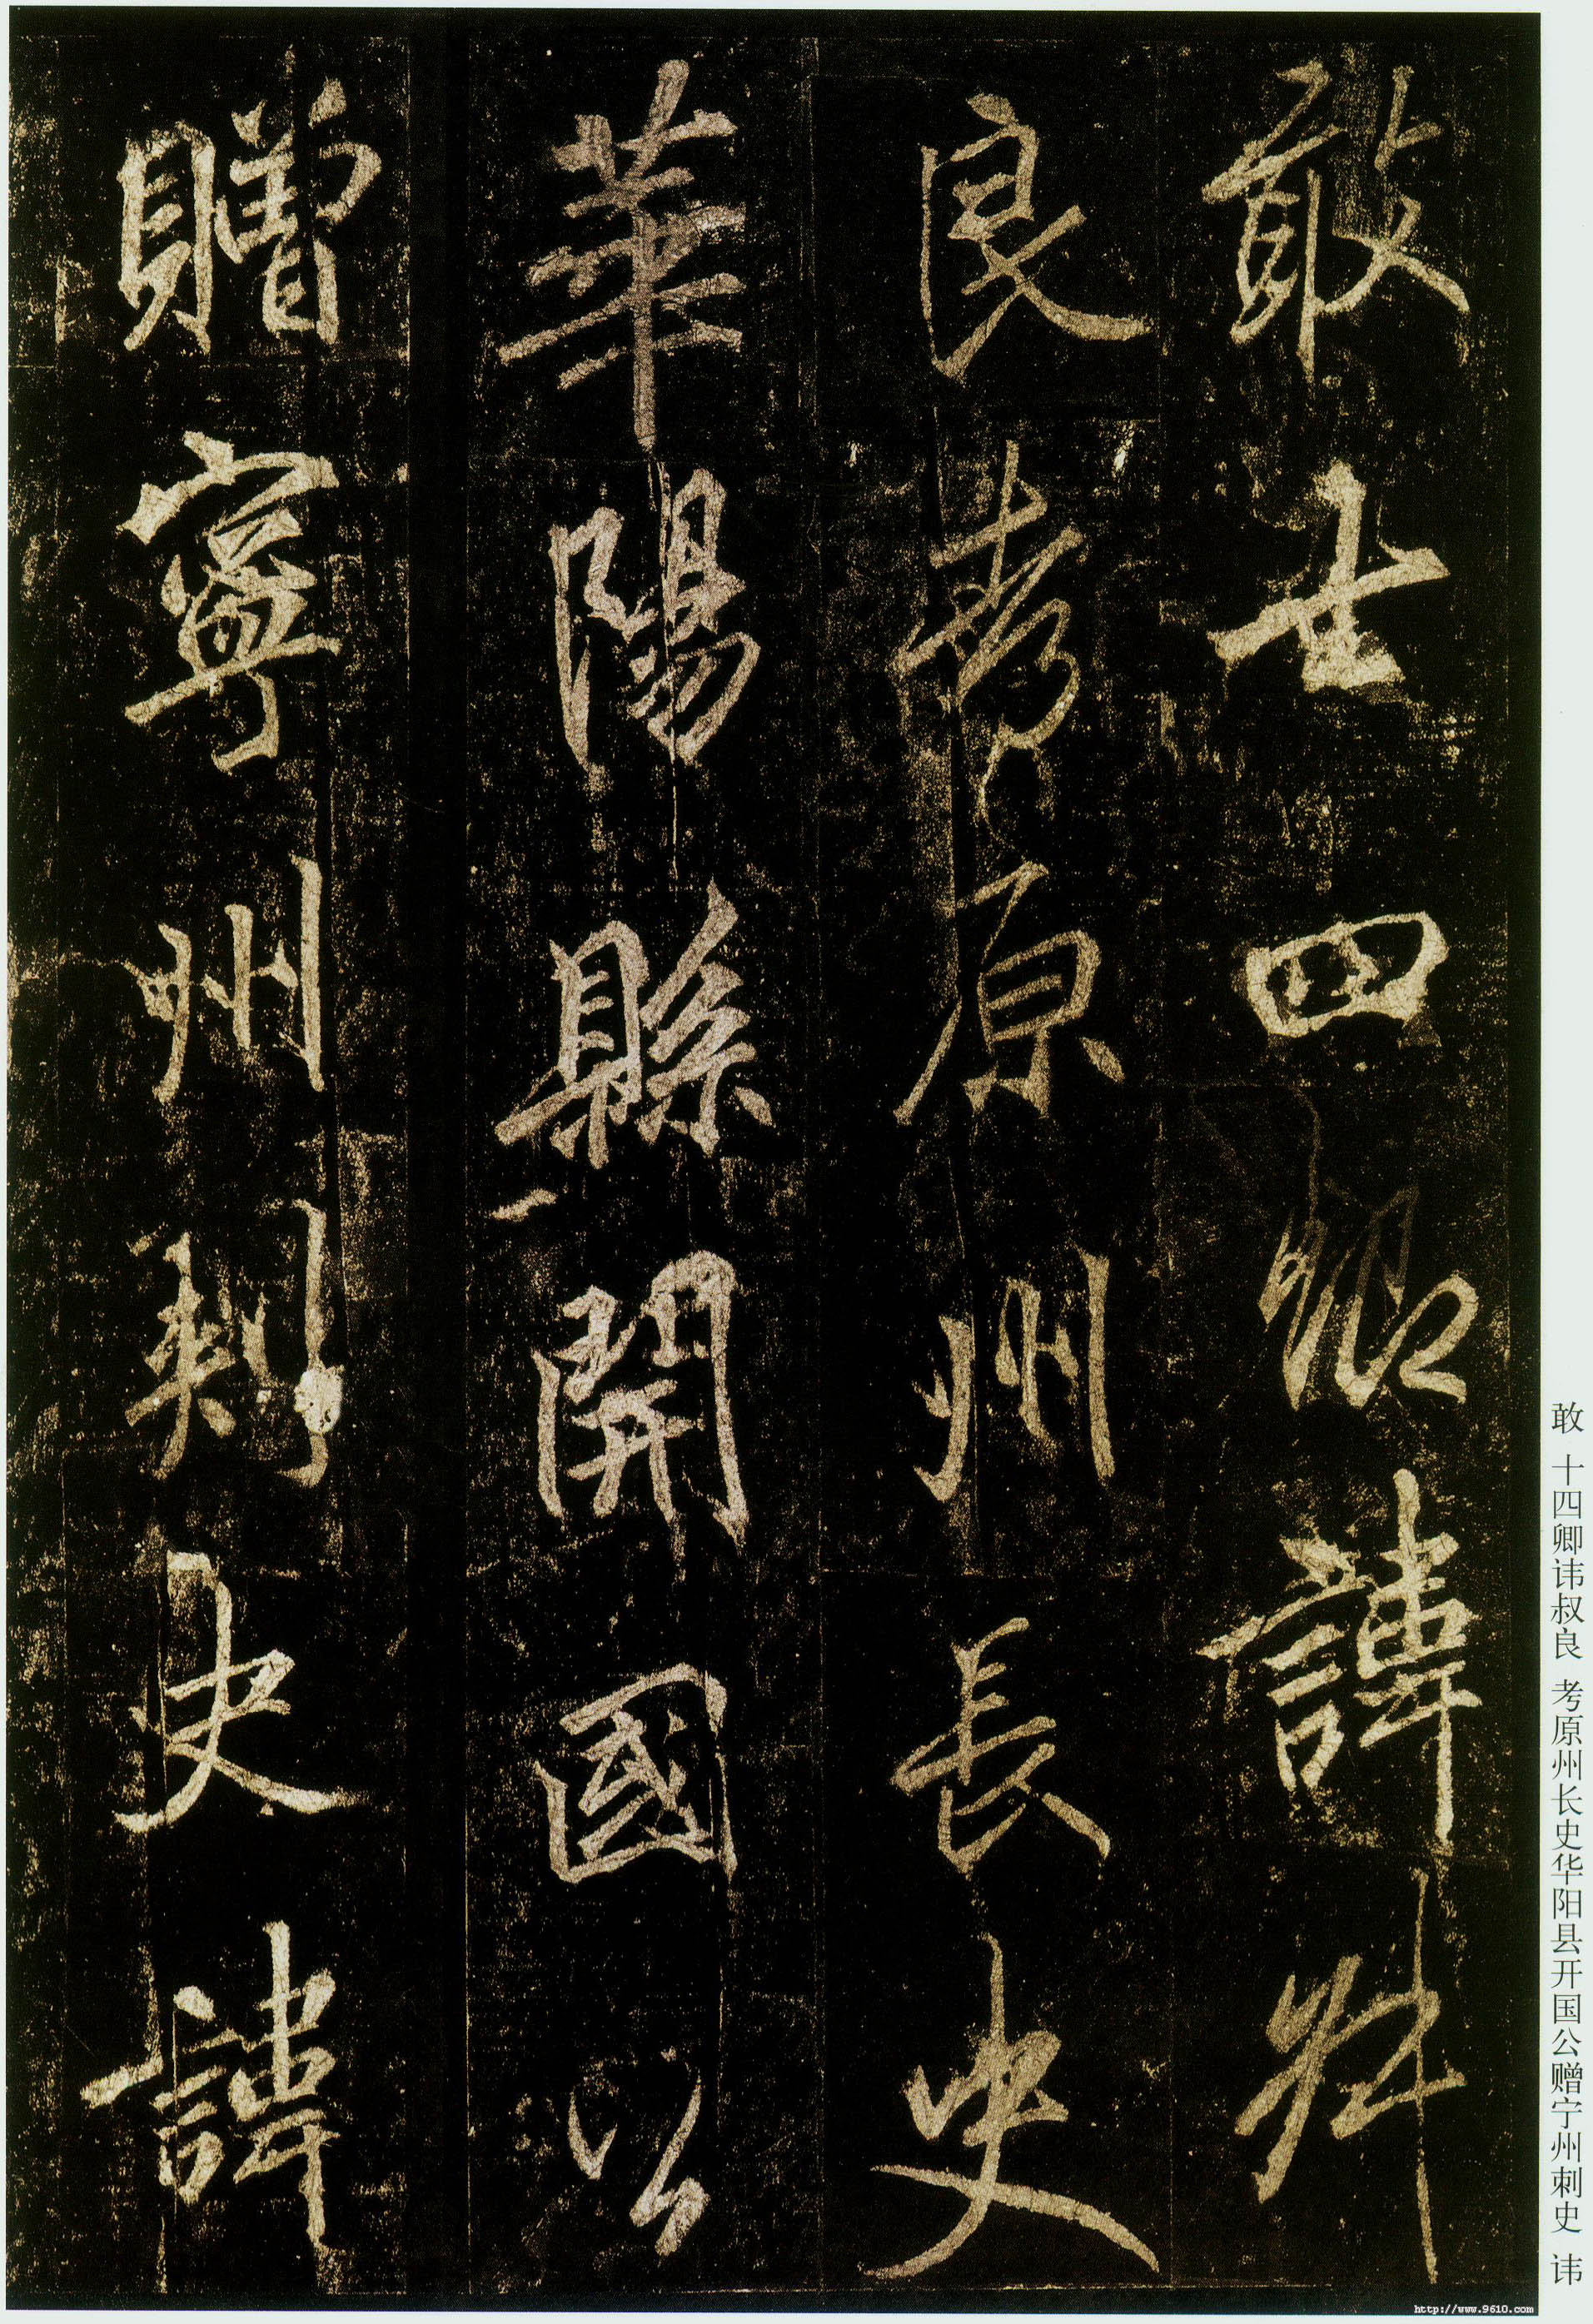 敢世四卿諱叔
良考原州長史
華陽縣開國公
贈寧州刺史諱
敢 十四卿讳叔良 考原州长史华阳县开国公赠宁州刺史 讳
http://www.9610.com